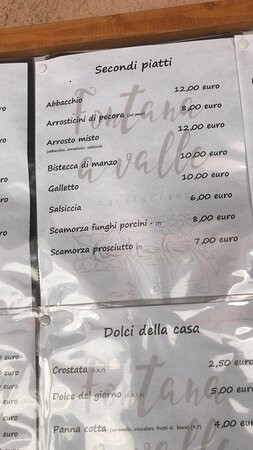 Secondi piatti
Abbacchio 12,00 euro
Arrosticini di pecora 8,00 euro
Arrosto misto 12,00 euro
Bistecca di manzo 10,00 euro
Galletto 10,00 euro
Salsiccia 6,00 euro
Scamorza funghi porcini 8,00 euro
Scamorza prosciutto 7,00 euro
Fontana
a valle
agriturismo
euro
euro
euro
euro
euro
euro
euro
Dolci della casa
Crostata 2,50 euro
Dolce del giorno 5,00 euro
Panna cotta (caramello, cioccolato, frutti di bosco) 4,00 euro
Fontana
a valle
euro
euro
euro
euro
euro